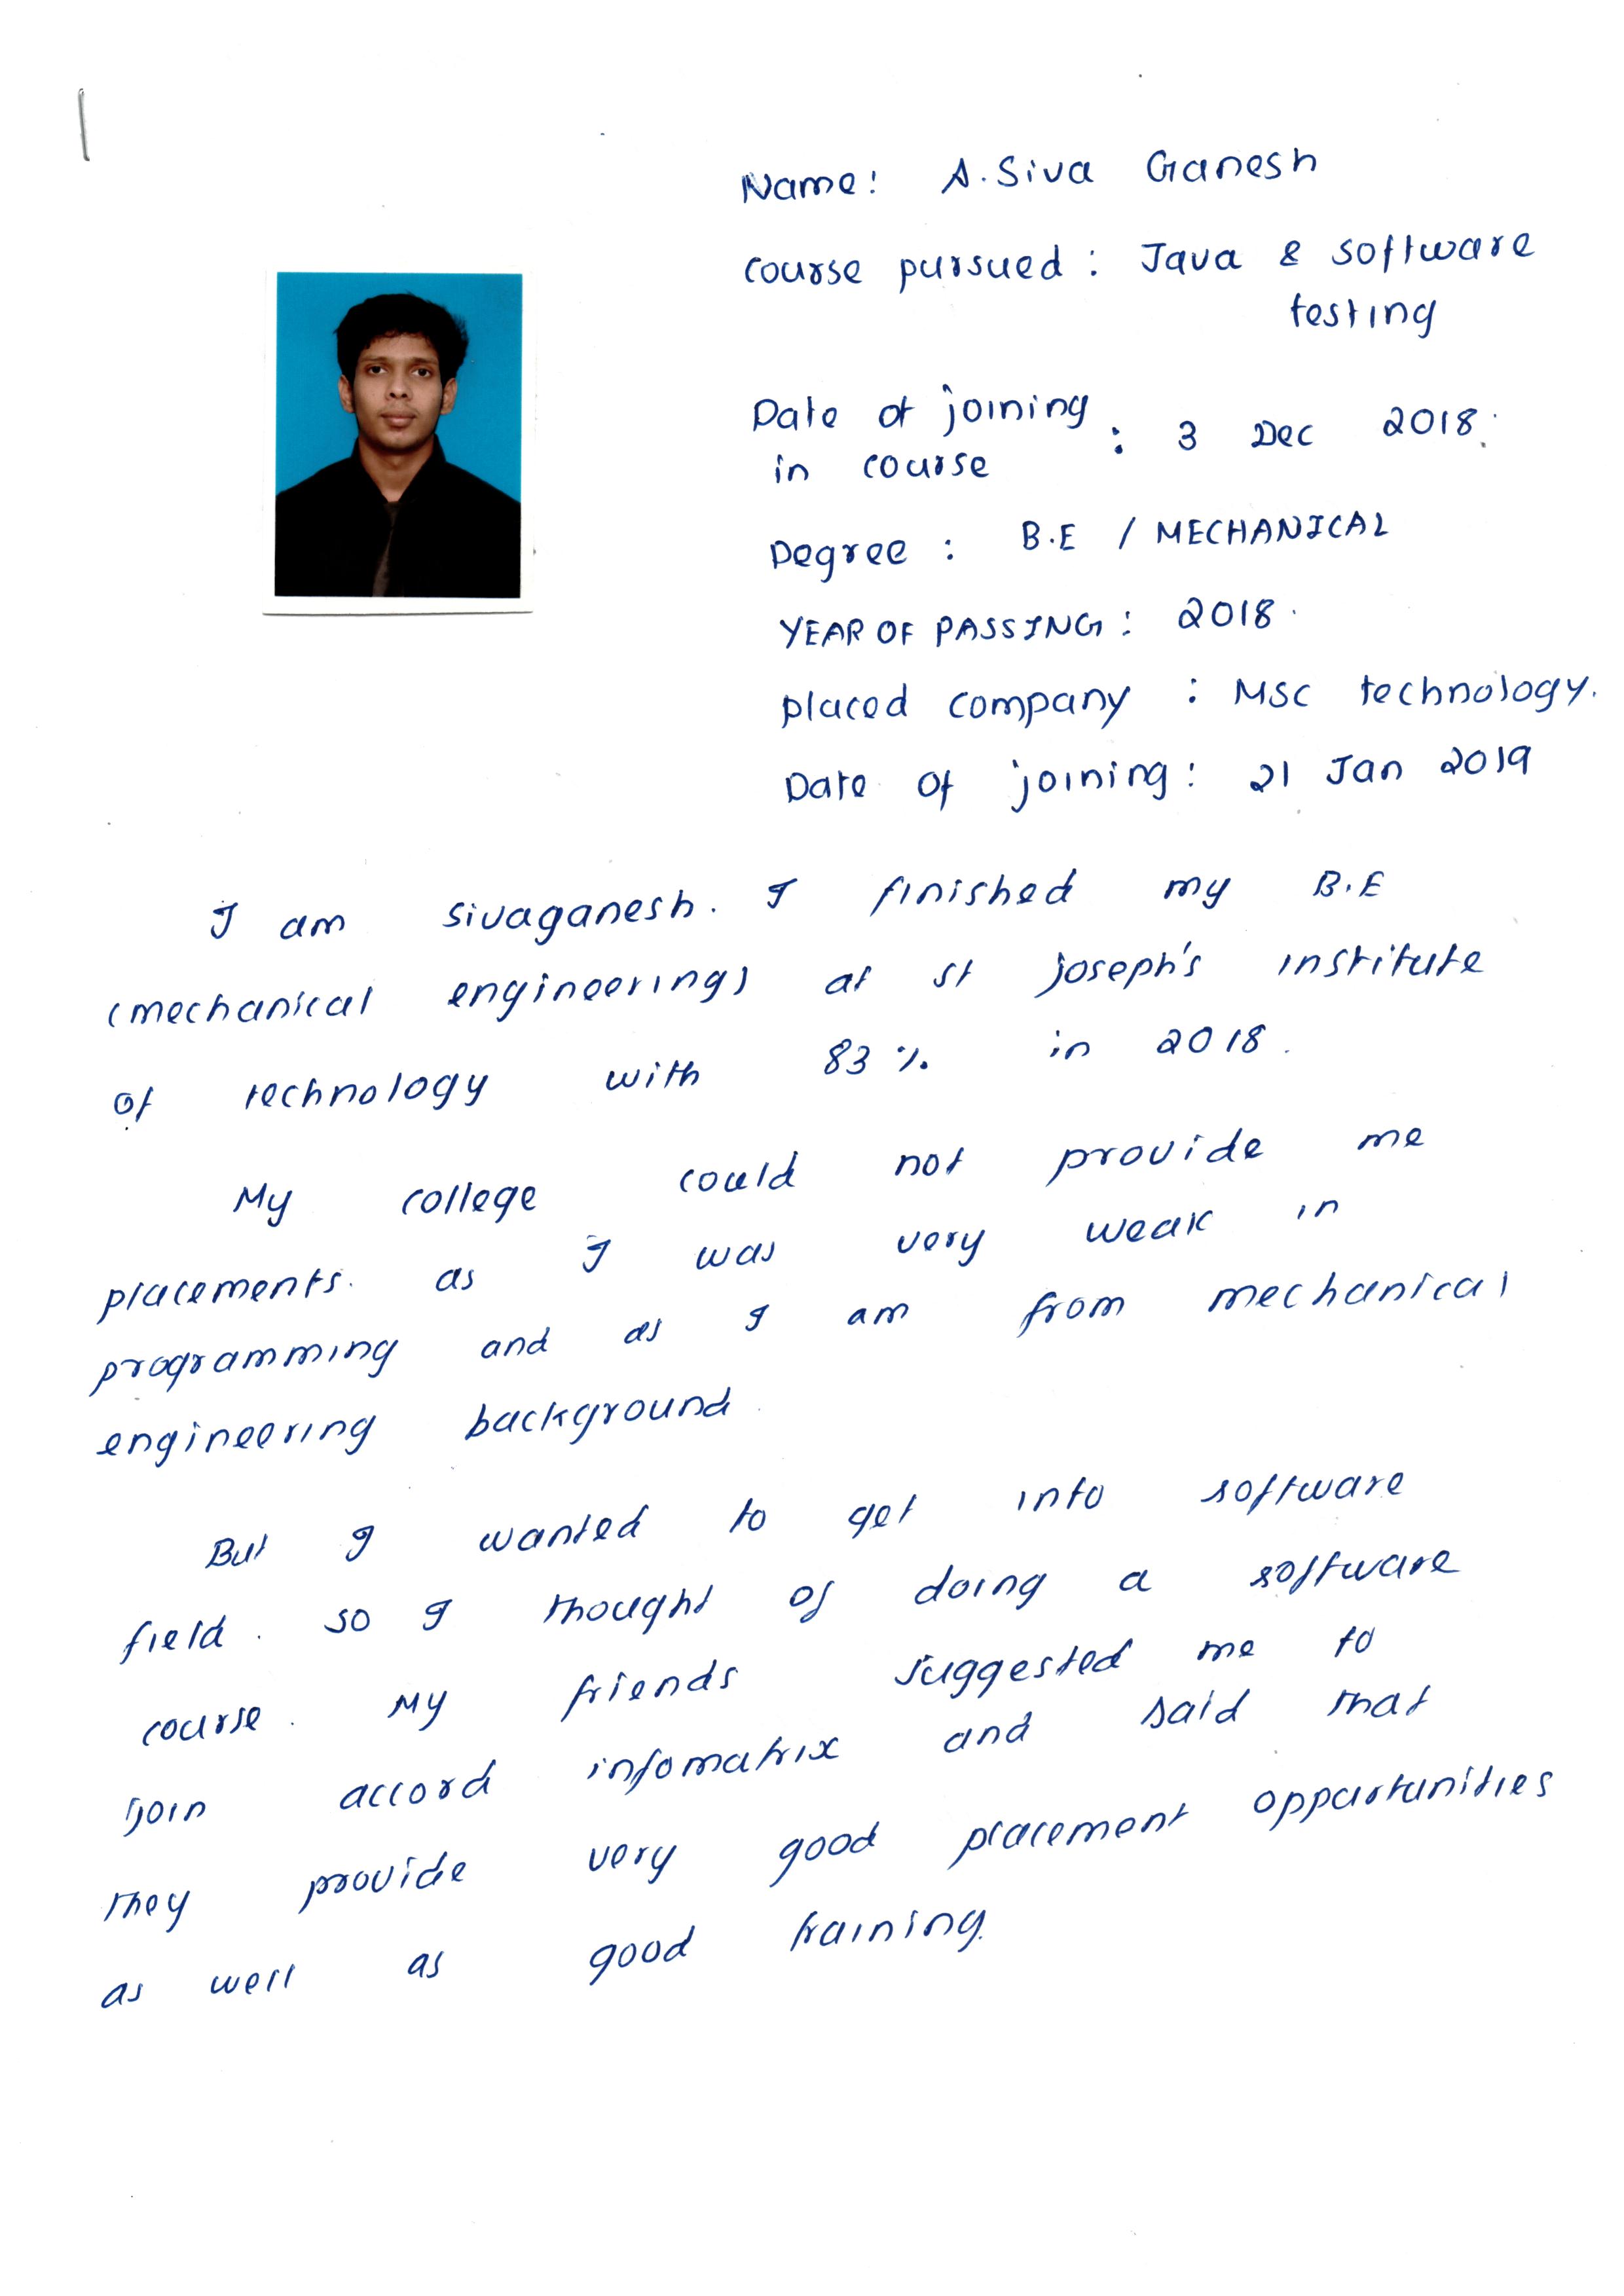 Name: A. Siva Ganesh
Course pursued: Java & software
testing
Date of joining
in course : 3 Dec 2018.
Degree : B.E / MECHANICAL
YEAR OF PASSING: 2018.
placed company : MSC technology.
Date of joining: 21 Jan 2019
I am sivaganesh. I finished my B.E
(mechanical engineering) at st joseph's institute
of technology with 83% in 2018.
My college could not provide me
placements. as I was very weak in
programming and as I am from mechanical
engineering background.
But I wanted to get into software
field. so I thought of doing a software
course. My friends suggested me to
join accord infomatrix and said that
they provide very good placement opportunities
as well as good training.